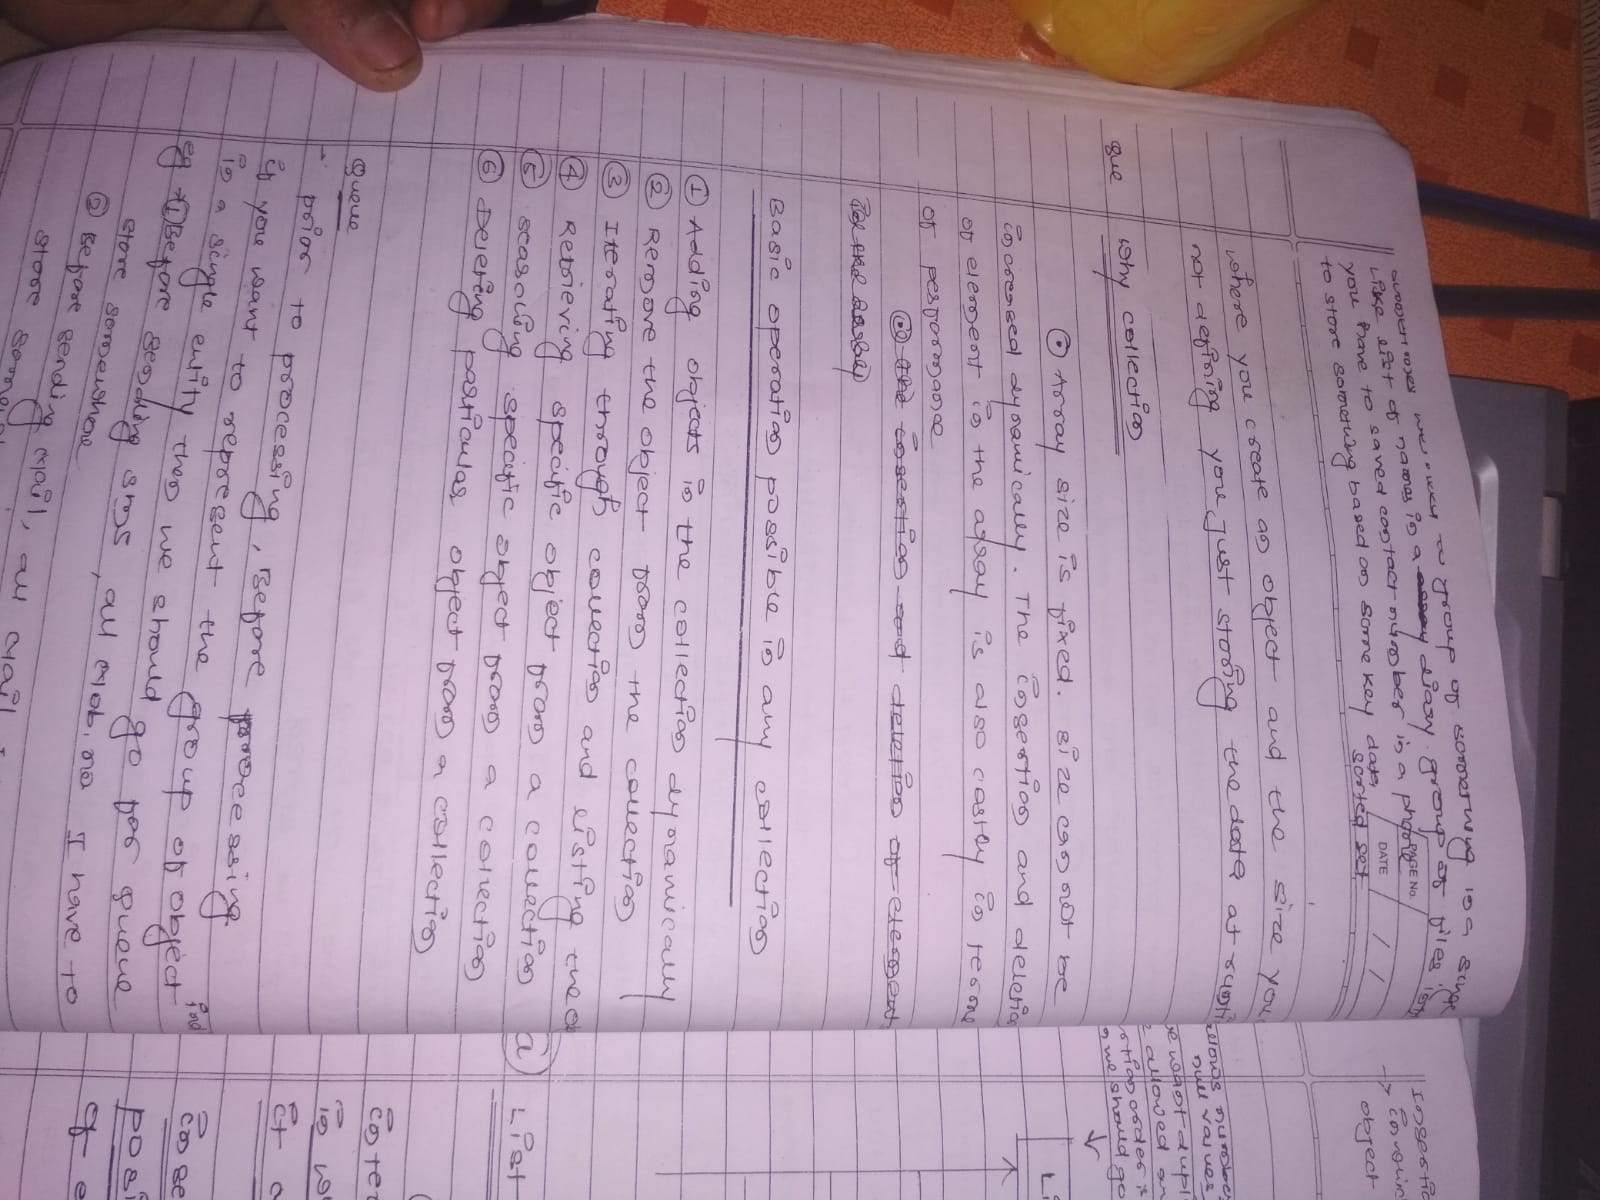 group of something in a single
like list of names in a diary. group of files in
you have to saved contact number in a phone
to store something based on some key data sorted set
PAGE NO.
DATE / /
where you create an object and the size you
not defining you just storing the data at
que why collection
⊙ Array size is fixed. size can not be
increased dynamically. The insertion and deletion
of element in the array is also costly in terms
of performance
Basic operation possible in any collection
① Adding objects in the collection dynamically
② Remove the object from the collection
③ Iterating through collection and listing the
④ Retrieving specific object from a collection
⑤ searching specific object from a collection
⑥ Deleting particular object from a collection
queue
- prior to processing, Before processing
if you want to represent the group of object
in a single entity then we should go for queue
eg ① Before sending sms, all mob. no I have to
store somewhere
② Before sending mail, all mail
store some
a List
null values
allowed
we should go
object